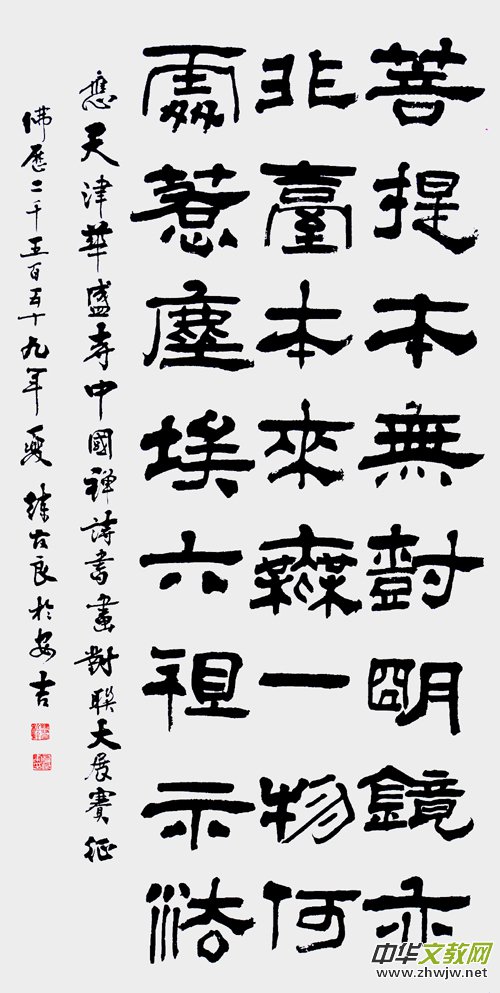 菩提本無樹明鏡亦
非臺本來無一物何
處惹塵埃六祖示法
應天津華盛寺中國禅詩書畫對联大展賽征
佛歷二千五百五十九年夏 古良於安吉
中华文教网
www.zhwjw.net